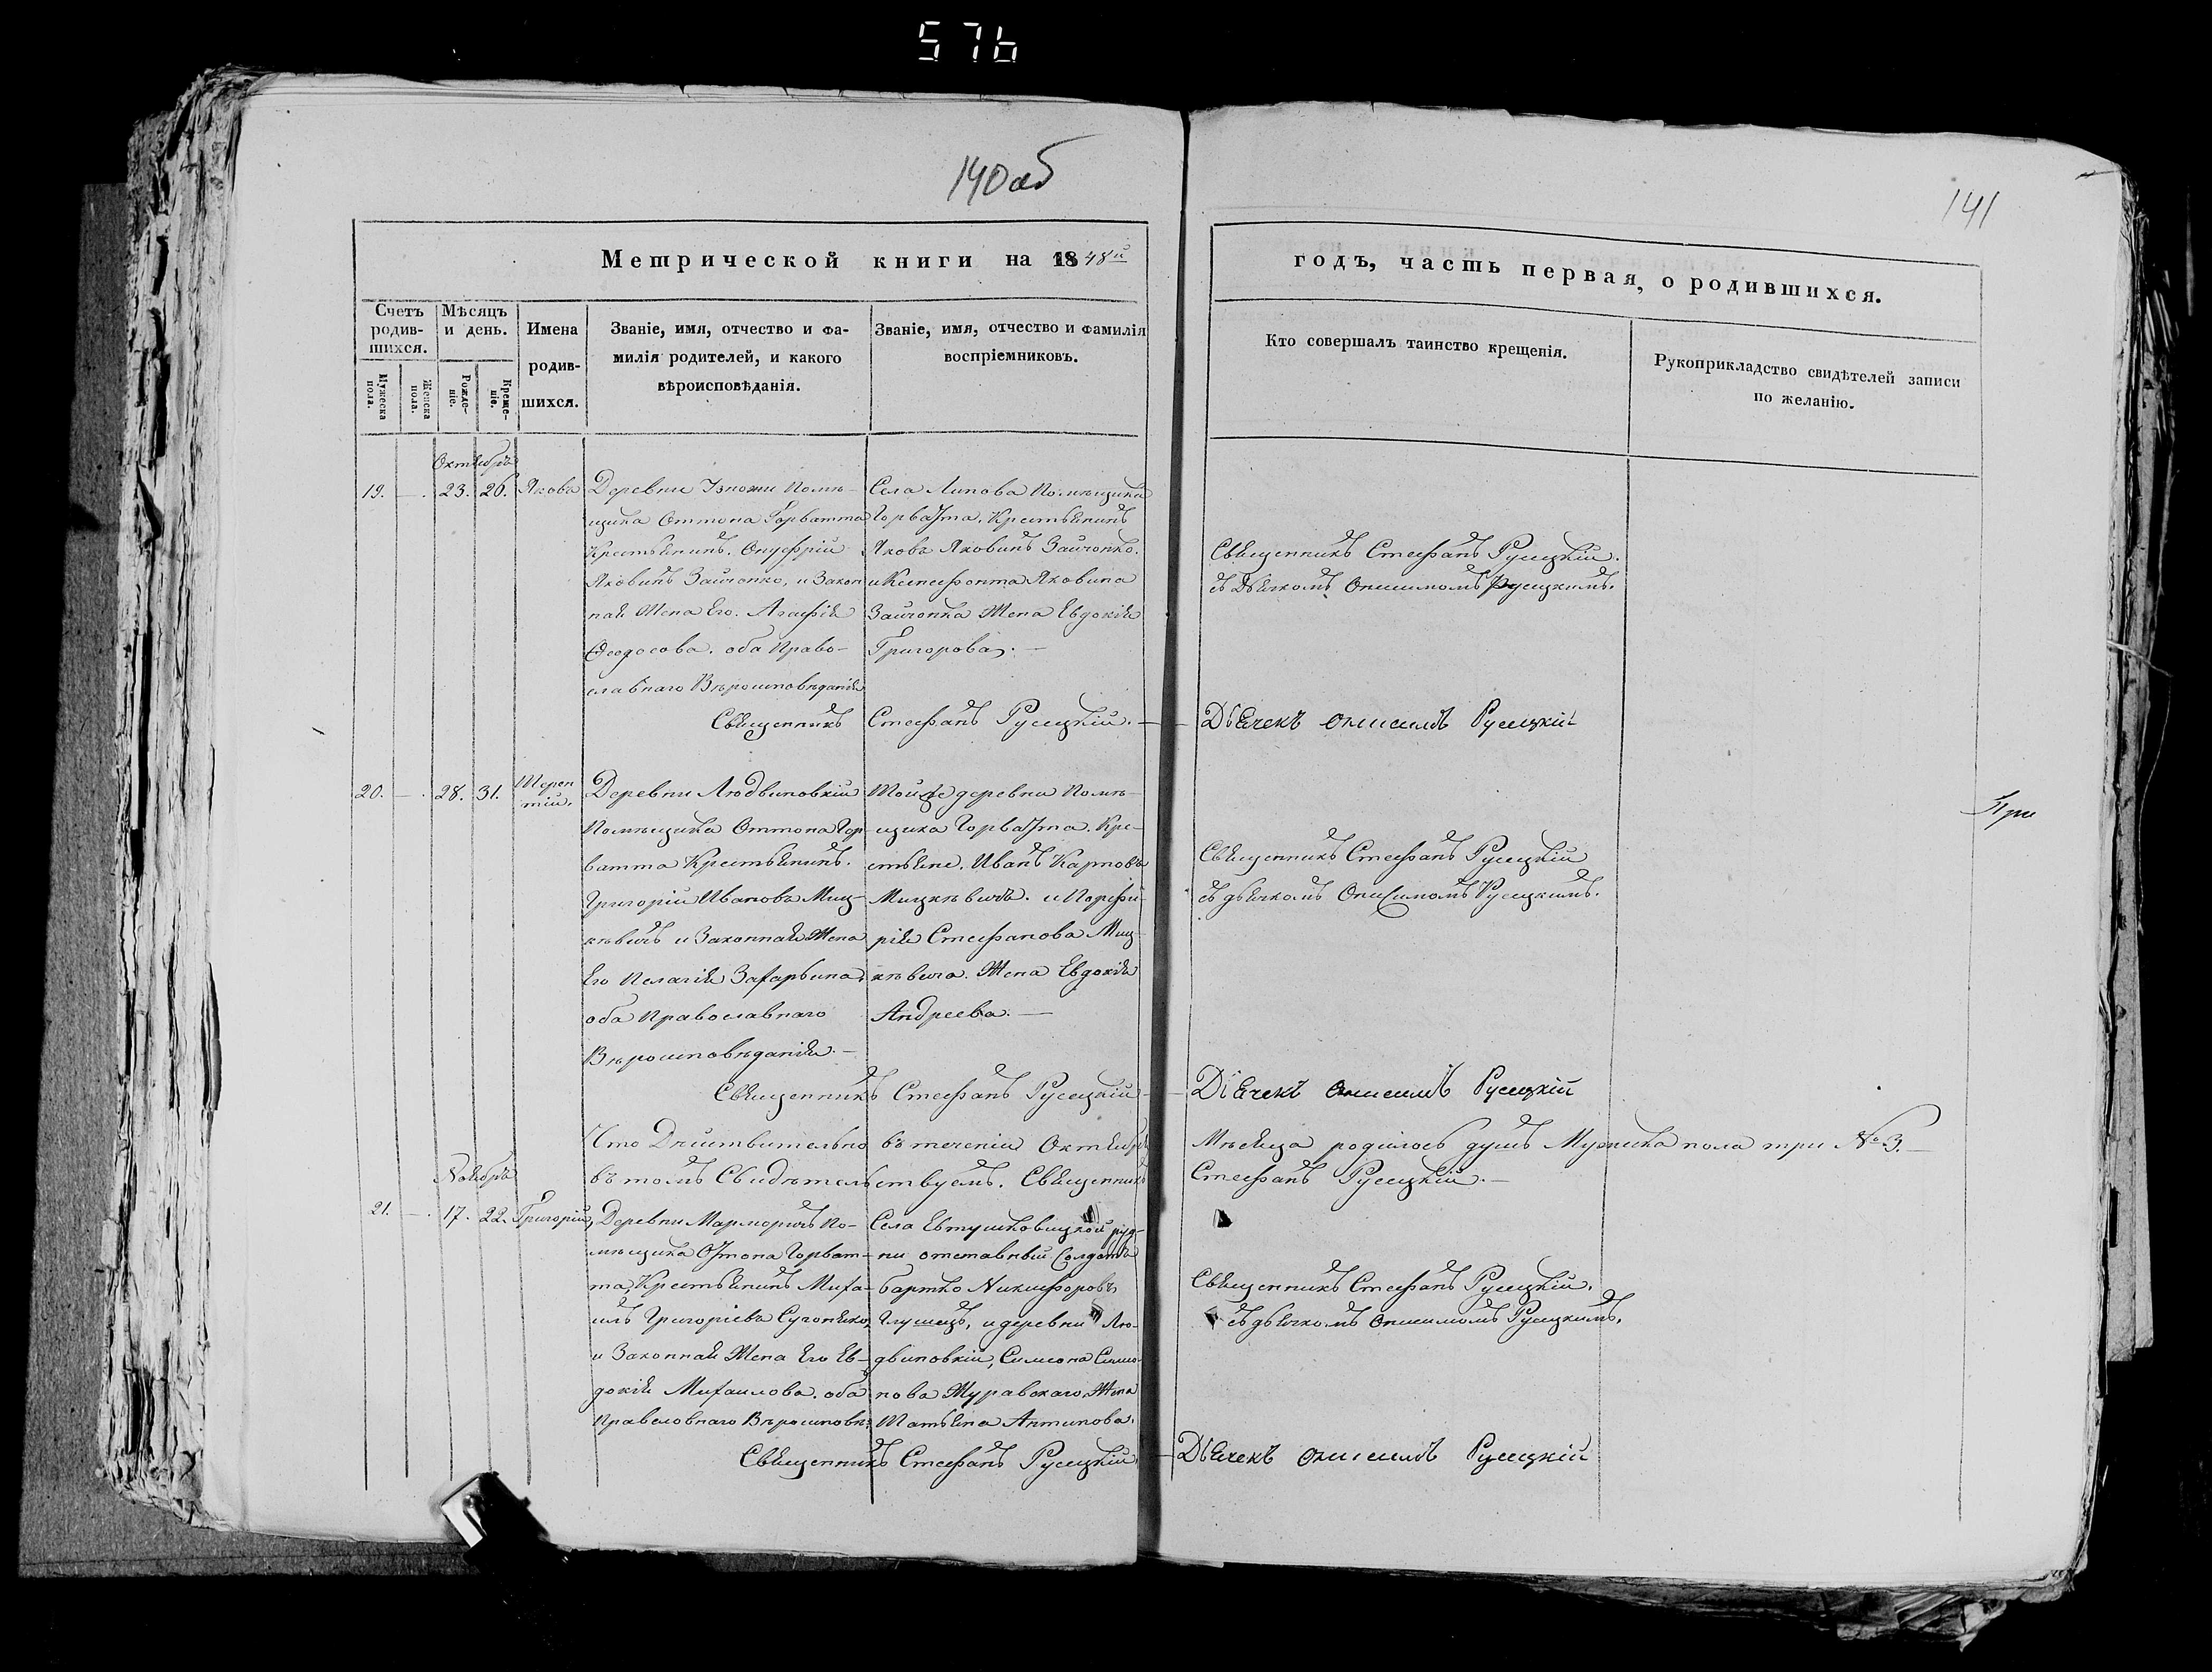 576
140 об
141
Метрической книги на 1848й
годъ, часть первая, о родившихся.
Счетъ родив-
шихся.
Мужеска пола.
Женска пола.
Мѣсяцъ
и день.
Рожде-
ніе.
Креще-
ніе.
Имена
родив-
шихся.
Званіе, имя, отчество и фа-
милія родителей, и какого
вѣроисповѣданія.
Званіе, имя, отчество и фамилія
воспріемниковъ.
Кто совершалъ таинство крещенія.
Рукоприкладство свидѣтелей записи
по желанію.
Октября
19. — 23. 26. Якова
Деревни Помѣ-
щика Оттона Горватта
Крестьянинъ. Онуфрій
Яковинъ Зайчонко, и Закон
ная Жена Его. Агафія
Феодосова. оба Право-
славнаго Вѣроисповѣданія
Села Липова Помѣщика
Горватта. Крестьянинъ
Якова Яковинъ Зайчонко.
и Ксенефонта Яковина
Зайчонка Жена Евдокія
Григорова. —
Священникъ Стефанъ Русецкій.
съ Дьячкомъ Онисимомъ Русецкимъ.
Священникъ Стефанъ Русецкій. —
Дьячекъ Онисимъ Русецкій
20. — 28. 31. Терен
тій.
Деревни Людвиновкій
Помѣщика Оттона Гор
ватта Крестьянинъ.
Григорій Иванова Миц-
кѣвичъ и Законная Жена
Его Пелагія Захарьина,
оба Православнаго
Вѣроисповѣданія. —
Той же деревни Помѣ-
щика Горватта. Кре-
стьяне. Иванъ Карповъ
Мицкѣвичъ. и Порфи-
рія Стефанова Миц-
кѣвича. Жена Евдокія
Андреева. —
Священникъ Стефанъ Русецкій
съ дьячкомъ Онисимомъ Русецкимъ.
При
Священникъ Стефанъ Русецкій —
Дьячекъ Онисимъ Русецкій
Что Дѣйствительно въ теченіи Октября
Мѣсяца родилось душъ Мужеска пола три № 3. —
въ томъ Свидѣтельствуемъ. Священникъ
Стефанъ Русецкій. —
Ноябрь
21. — 17. 22. Григорій,
Деревни Марморичъ По-
мѣщика Оттона Горват-
та, Крестьянинъ Миха-
илъ Григоріева Сугоняко,
и Законная Жена Его Ев-
докія Михаилова. оба
Православнаго Вѣроисповѣ:
Села Евтушковицкой руд-
ни отставный Солдатъ
бартко Никифоровъ
Глушецъ, и деревни Лю-
двиновкій, Симеона Симо-
нова Журавскаго, Жена
Татьяна Антипова.
Священникъ Стефанъ Русецкій.
съ дьячкомъ Онисимомъ Русецкимъ.
Священникъ Стефанъ Русецкій —
Дьячекъ Онисимъ Русецкій